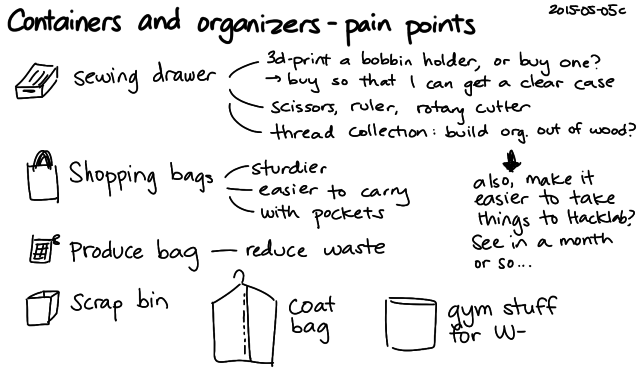 Containers and organizers - pain points
2015-05-05c
sewing drawer
3d-print a bobbin holder, or buy one?
→ buy so that I can get a clear case
scissors, ruler, rotary cutter
thread collection: build org. out of wood?
also, make it
easier to take
things to Hacklab?
See in a month
or so...
Shopping bags
sturdier
easier to carry
with pockets
Produce bag — reduce waste
Scrap bin
coat
bag
gym stuff
for W-